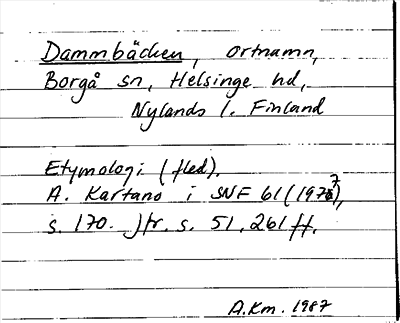 Dammbäcken, ortnamn,
Borgå sn, Helsinge hd,
Nylands l. Finland
Etymologi (fled).
A. Kartano i SNF 61 (1977),
s. 170. Jfr. s. 51, 261 ff.
A.Km. 1987